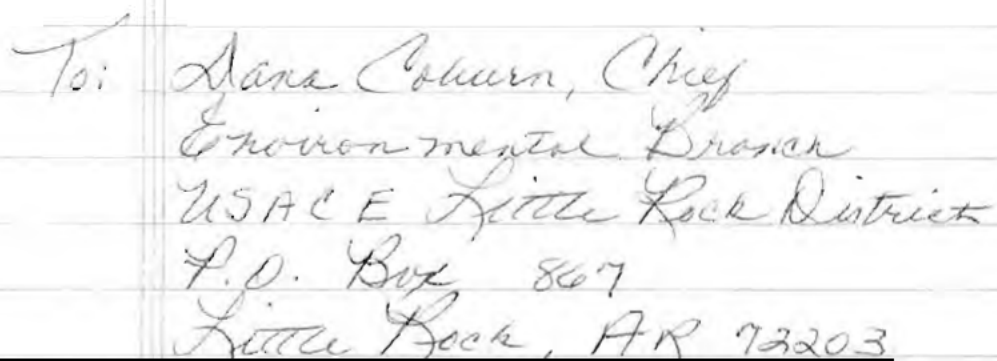 To: Dana Coburn, Chief
Environmental Branch
USACE Little Rock District
P.O. Box 867
Little Rock, AR 72203